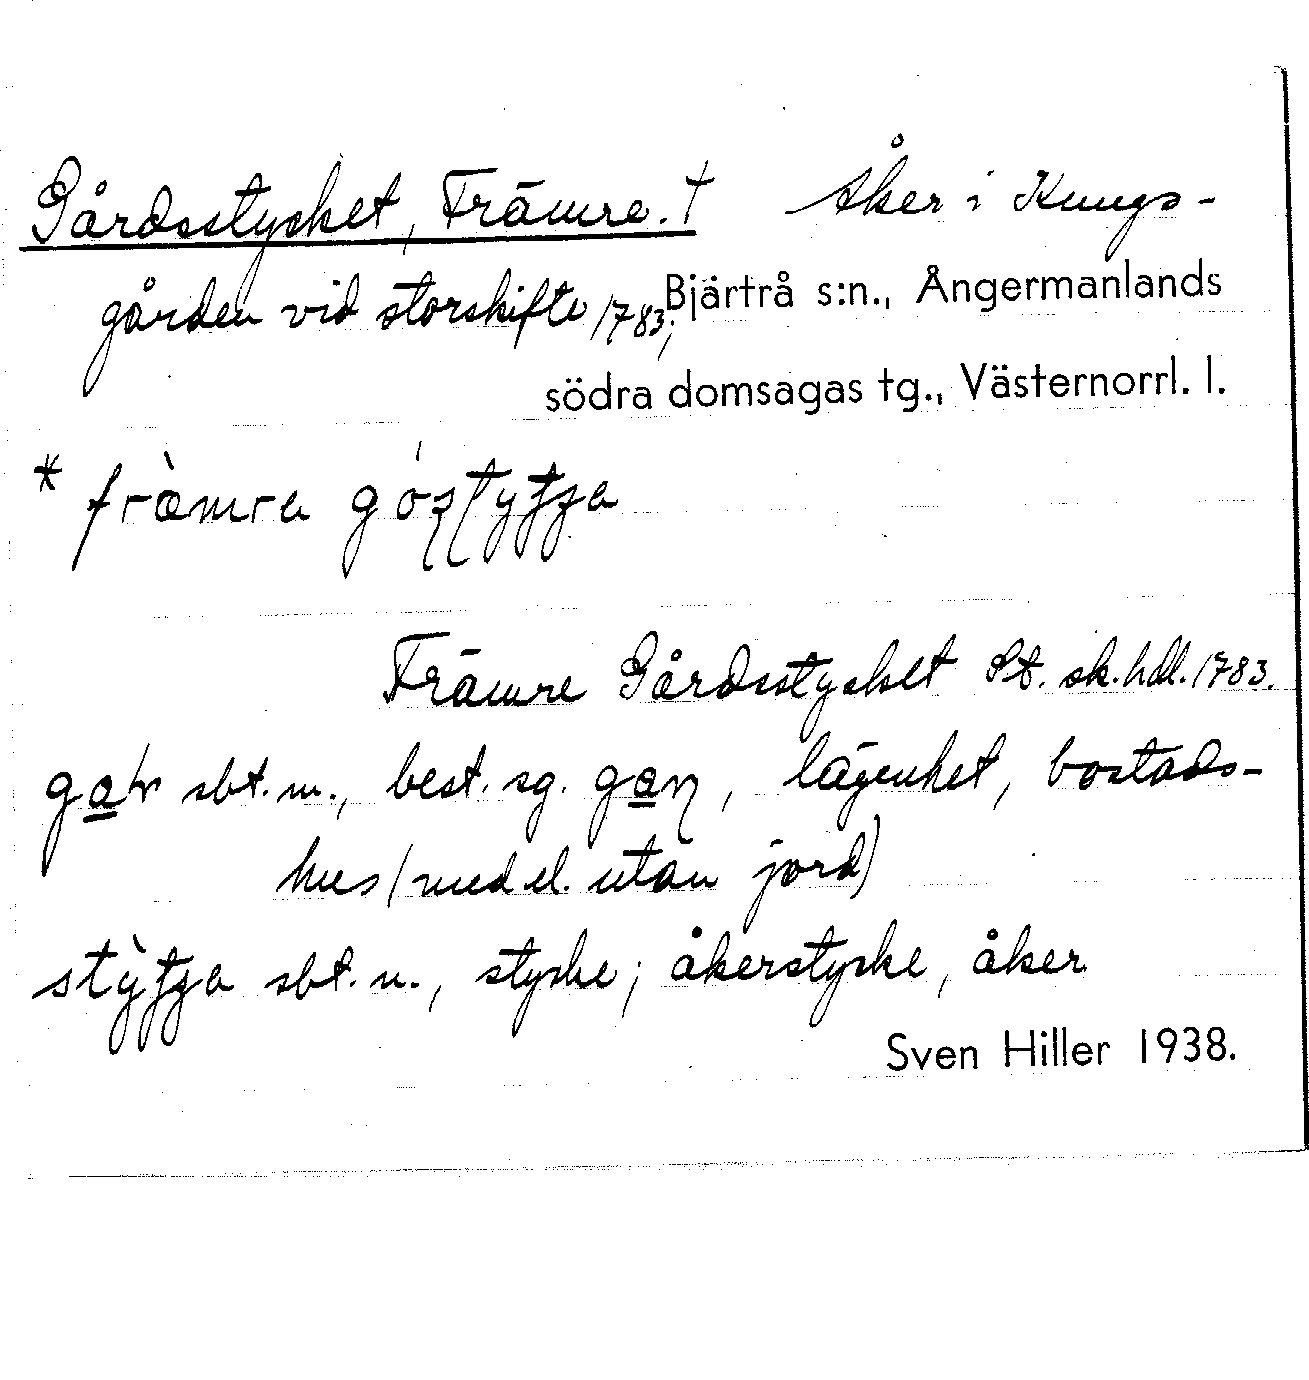 Gårdsstycket, Främre. † Åker i Kungs-
gården vid storskifte 1783; Bjärtrå s:n., Ångermanlands
södra domsagas tg., Västernorrl. l.
* främra
Främre Gårdsstycket St. sk. hdl. 1783.
sbt. m., best. sg. lägenhet, bostads-
hus (med el. utan jord)
sbt. n., stycke; åkerstycke, åker
Sven Hiller 1938.